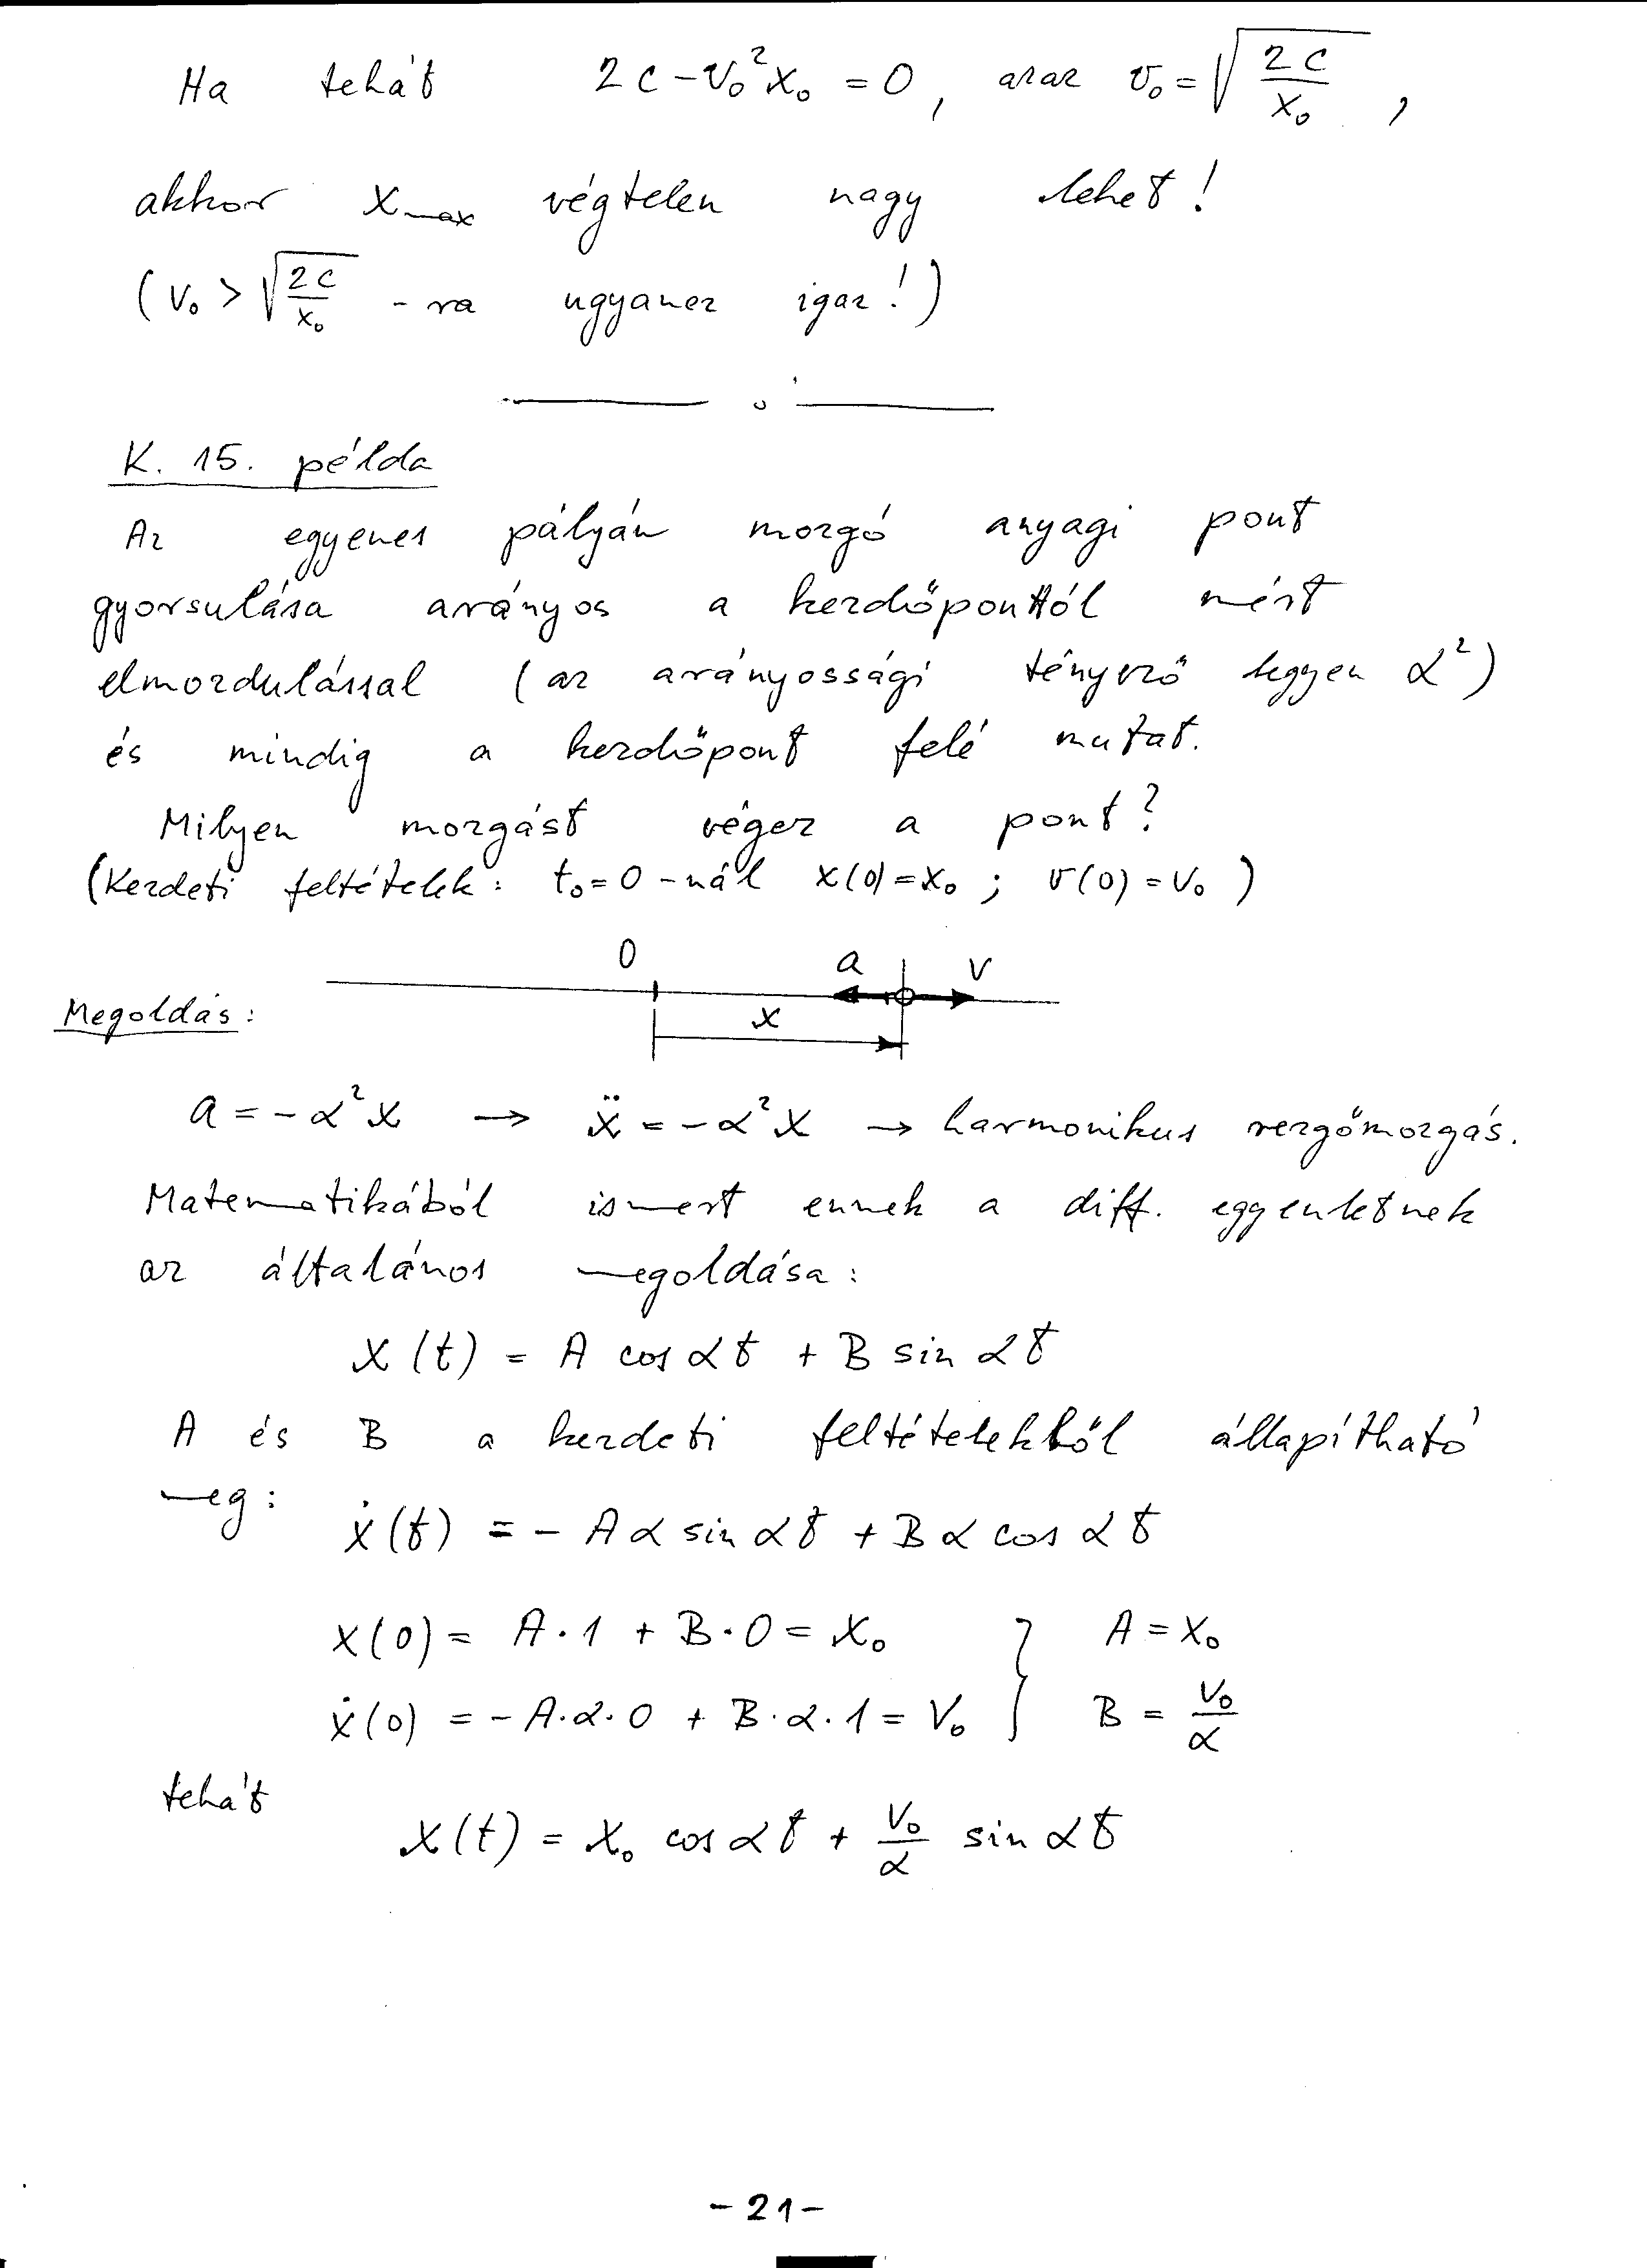 Ha tehát 2c - v₀²x₀ = 0, azaz v₀ = √(2c/x₀),
akkor x_max végtelen nagy lehet!
(v₀ > √(2c/x₀) -ra ugyanez igaz!)
K. 15. példa
Az egyenes pályán mozgó anyagi pont
gyorsulása arányos a kezdőponttól mért
elmozdulással (az arányossági tényező legyen α²)
és mindig a kezdőpont felé mutat.
Milyen mozgást végez a pont?
(Kezdeti feltételek: t₀ = 0 -nál x(0) = x₀ ; v(0) = v₀)
0 a v
x
Megoldás:
a = -α²x → ẍ = -α²x → harmonikus rezgőmozgás.
Matematikából ismert ennek a diff. egyenletnek
az általános megoldása:
x(t) = A cos αt + B sin αt
A és B a kezdeti feltételekből állapítható
meg:
ẋ(t) = - Aα sin αt + Bα cos αt
x(0) = A·1 + B·0 = x₀ } A = x₀
ẋ(0) = -A·α·0 + B·α·1 = v₀ } B = v₀/α
tehát
x(t) = x₀ cos αt + v₀/α sin αt
-21-